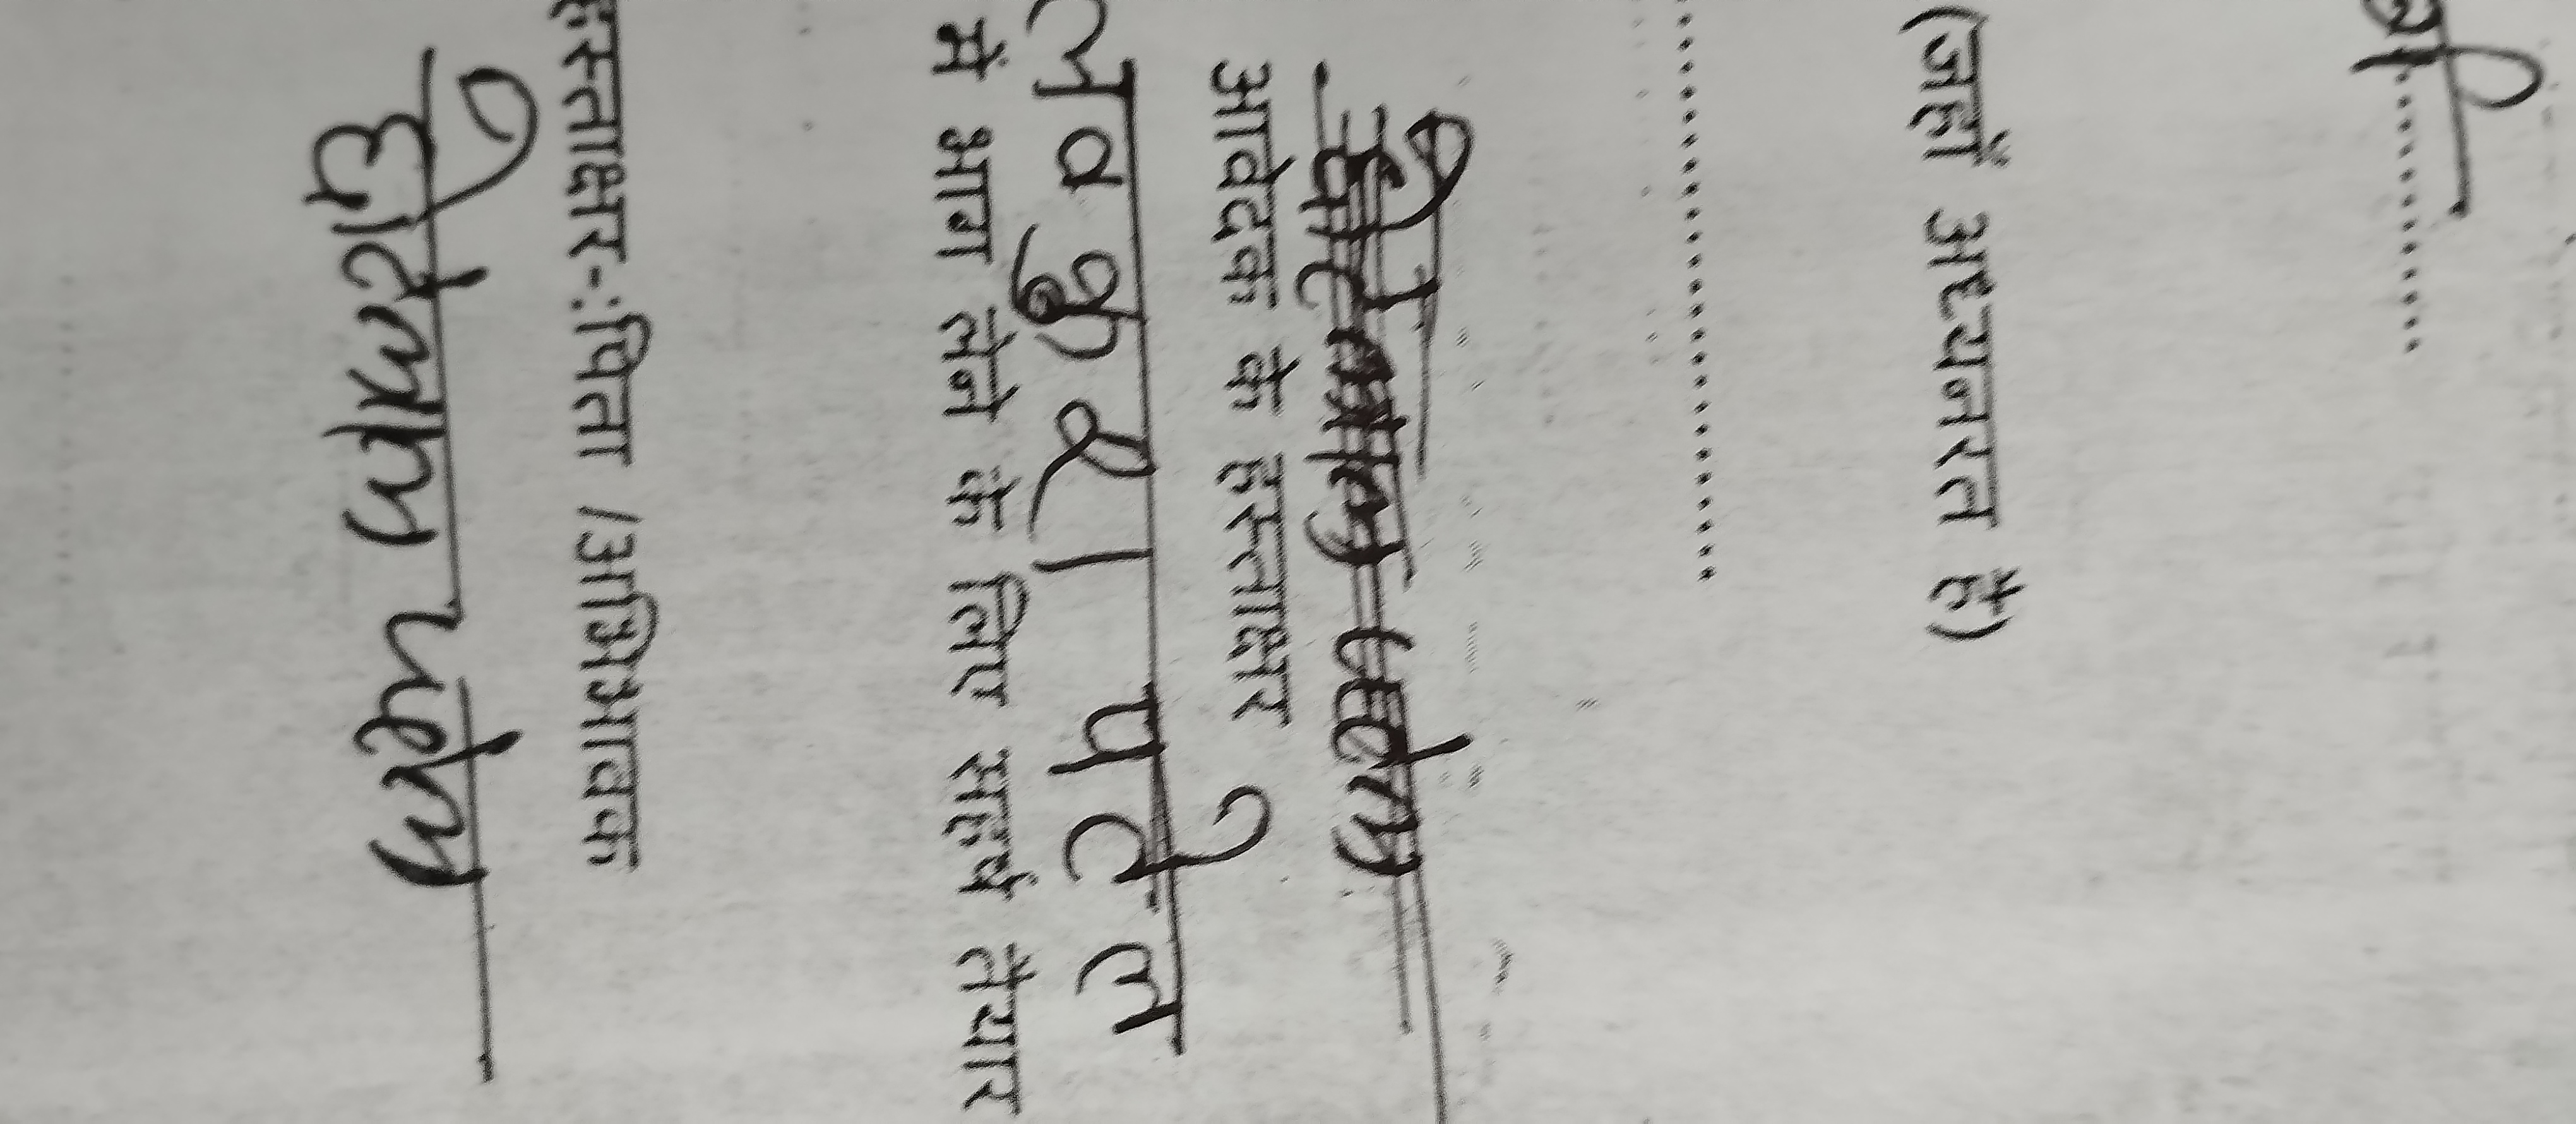 (जहाँ अध्ययनरत है)
..............................
छोटेलाल पटेल
आवेदक के हस्ताक्षर
लवकुश पटेल
मे भाग लेने के लिए सहर्ष तैयार
हस्ताक्षर-:पिता /अभिभावक
छोटेलाल पटेल